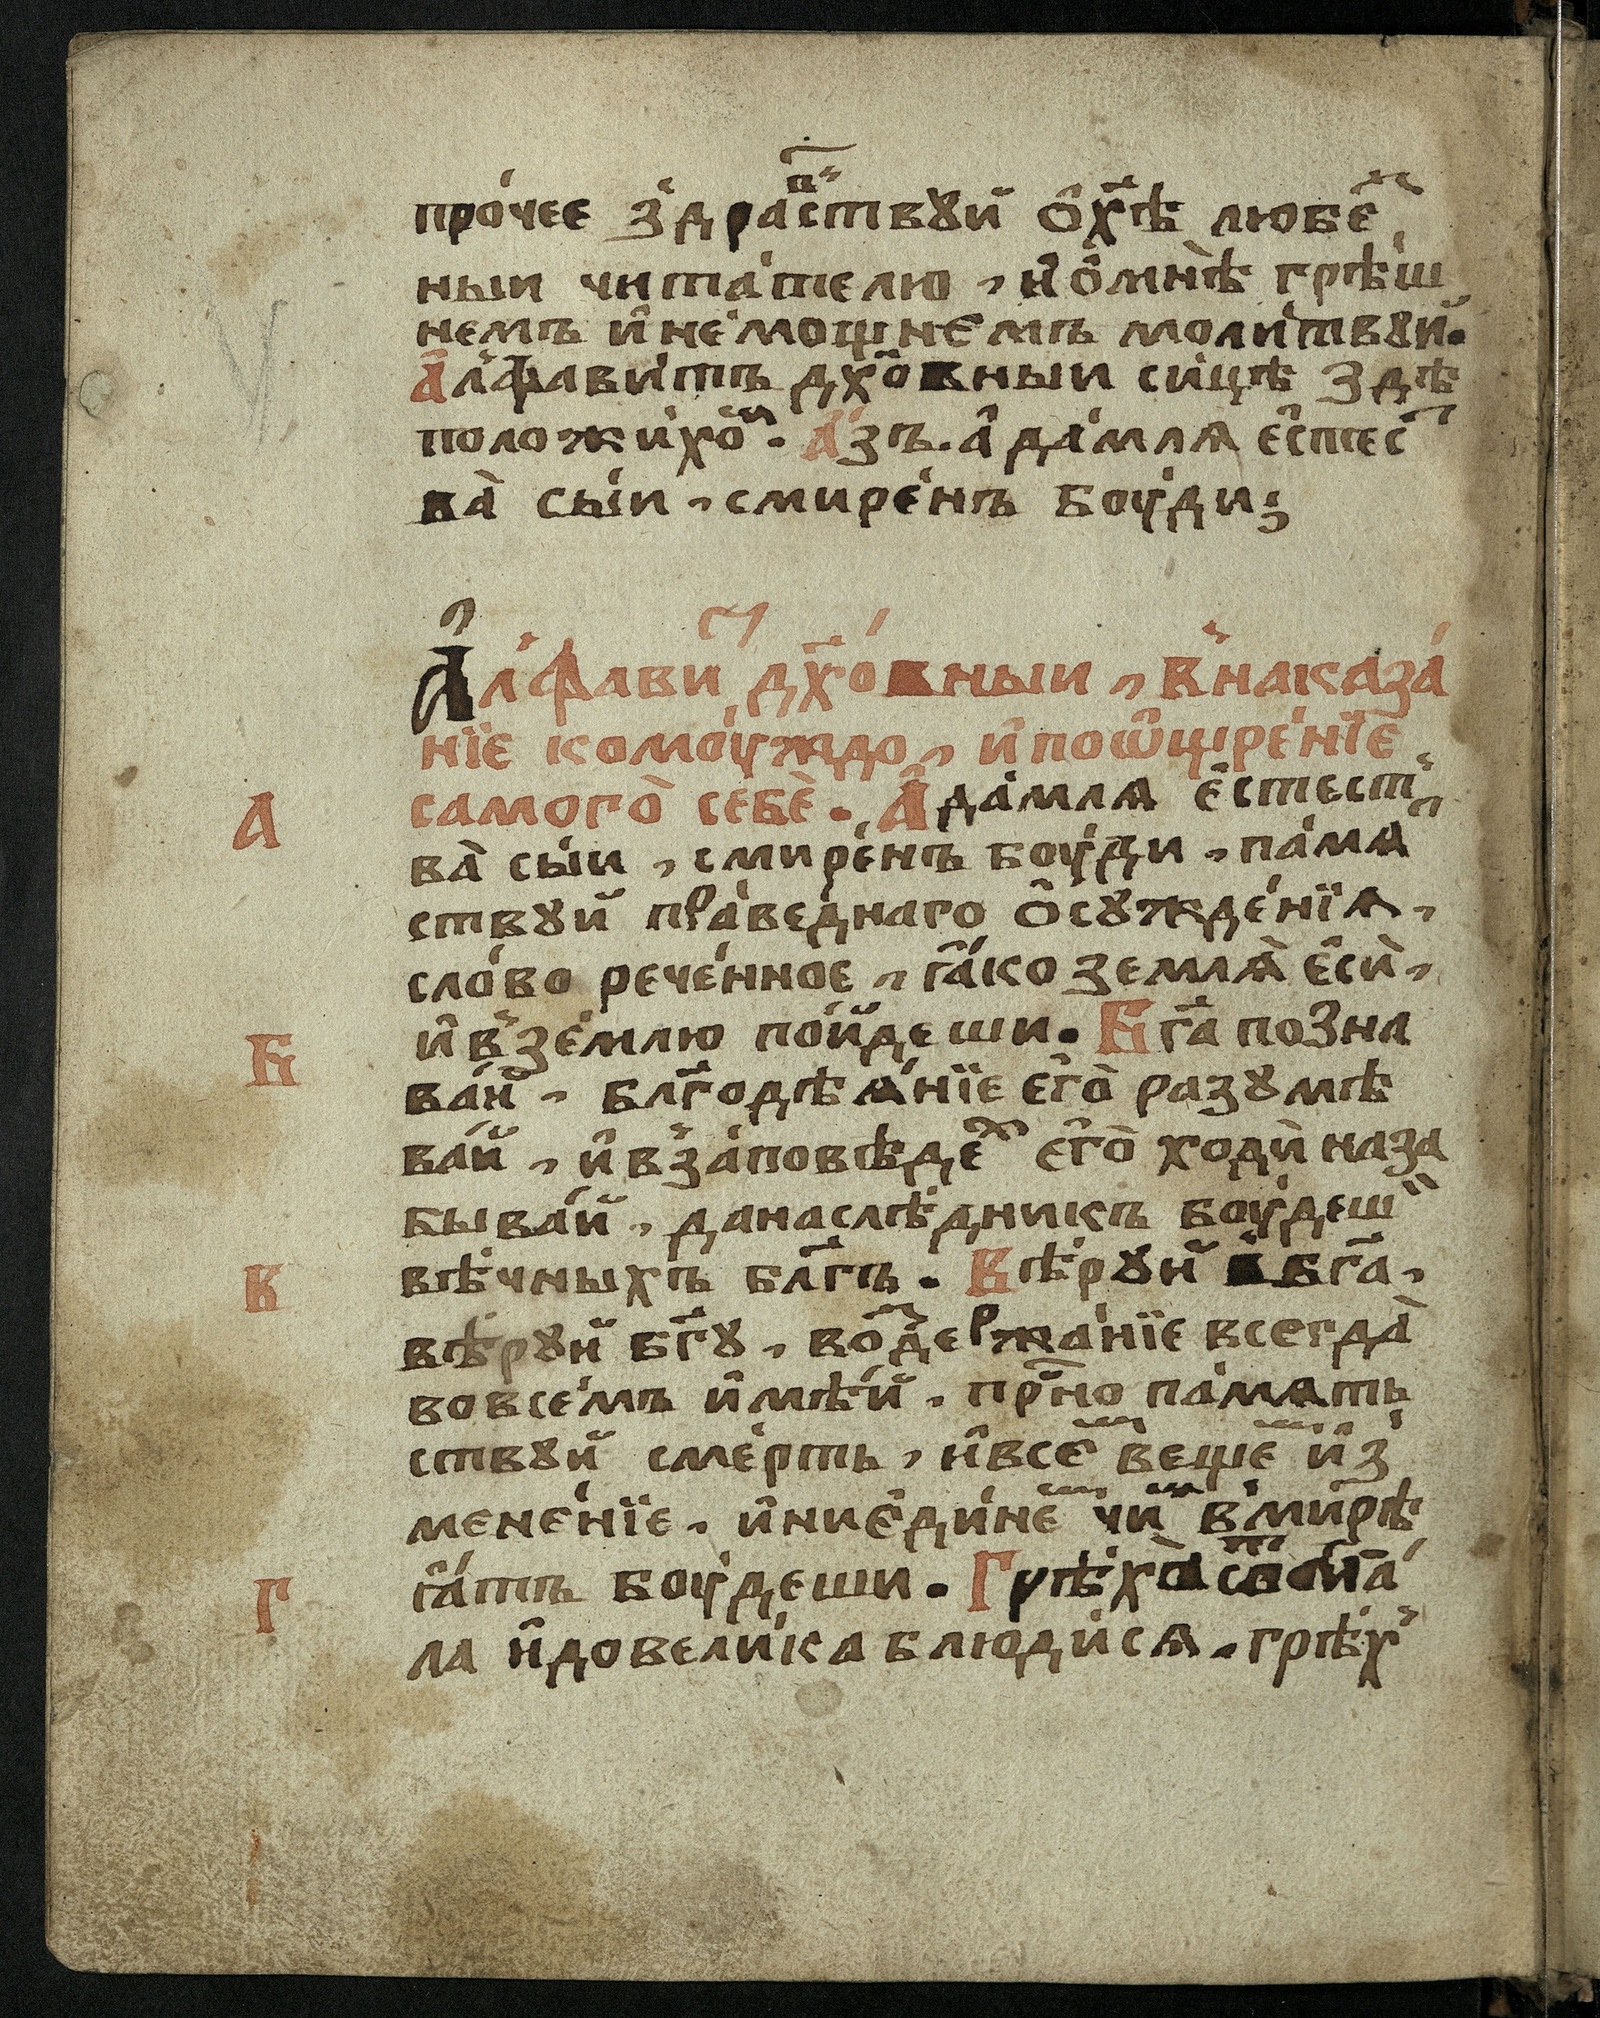 про́чее з̾дра́ствꙋй ѡ҆ хрⷭ҇тѣ любе́
ныи чита́телю , и҆ ѡ҆ мнѣ̀ грѣ́ш
немъ и҆ не́мощнемъ моли́твꙋй.
А҆лфави́тъ дх҃о́вныи си́цѣ здѣ
положи́хоⷨ. А҆́зъ. а҆да́мля є҆стесⷮ
ва̀ сы́и , смире́нъ бꙋ́ди;
А҆лфави́ⷮ дх҃о́вныи , в̾ наказа́
нїе комоу́ждо , и҆ поѡ҆щре́нїе
самого̀ себѐ . А҆да́мля є҆стест
А
ва̀ сы́и , смире́нъ боу́ди , па́мѧ
ствꙋй пра́веднаго ѡ҆сꙋжде́нїѧ ,
сло́во рече́нное , ꙗ҆́ко землѧ̀ є҆сѝ ,
и҆ в̾ зе́млю по́йдеши . Бг҃а позна
Б
ва́й , блг҃одѣѧ́нїе є҆го̀ разꙋмѣ
ва́й , и҆ в̾ за́повѣдеⷯ є҆го̀ ходѝ на за
быва́й , да наслѣ́дникъ боу́деш
вѣ́чныхъ бл҃гъ . Вѣ́рꙋй в̾ бг҃а ,
В
вѣ́рꙋй бг҃ꙋ , воⷥде́ржа́нїе всегда̀
во все́мъ и҆мѣ́й , прⷭ҇но па́мѧть
ствꙋй сме́рть , и҆ всеⷨ҇ веще́ⷨ и҆з
мене́нїе , и҆ ни є҆ди́неⷨ чиⷨ в̾ ми́рѣ
ꙗ҆́тъ боу́деши . Грѣ́ха свои́ⷯ ма́
Г
ла и҆ до вели́ка блюди́сѧ , грѣ́х